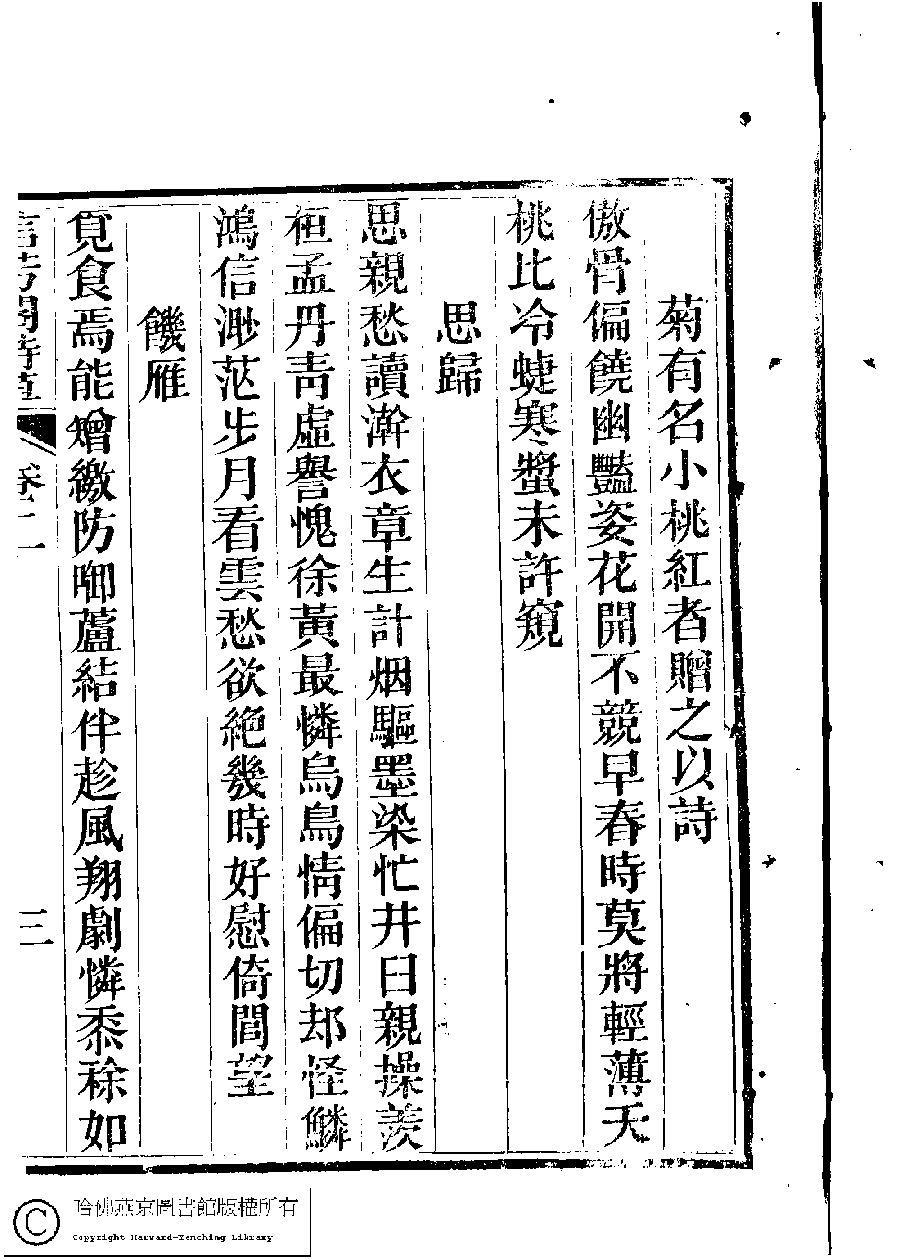 菊有名小桃紅者贈之以詩
傲骨偏饒幽豔姿花開不競早春時莫將輕薄夭
桃比冷蜨寒螿未許窺
思歸
思親愁讀澣衣章生計烟驅墨染忙井臼親操羨
桓孟丹青虛譽愧徐黃最憐烏鳥情偏切却怪鱗
鴻信渺茫步月看雲愁欲絶幾時好慰倚閭望
饑雁
覓食焉能矰繳防啣蘆結伴趁風翔劇憐黍稌如
卷二
三
哈佛燕京圖書館版權所有
Copyright Harvard-Yenching Library